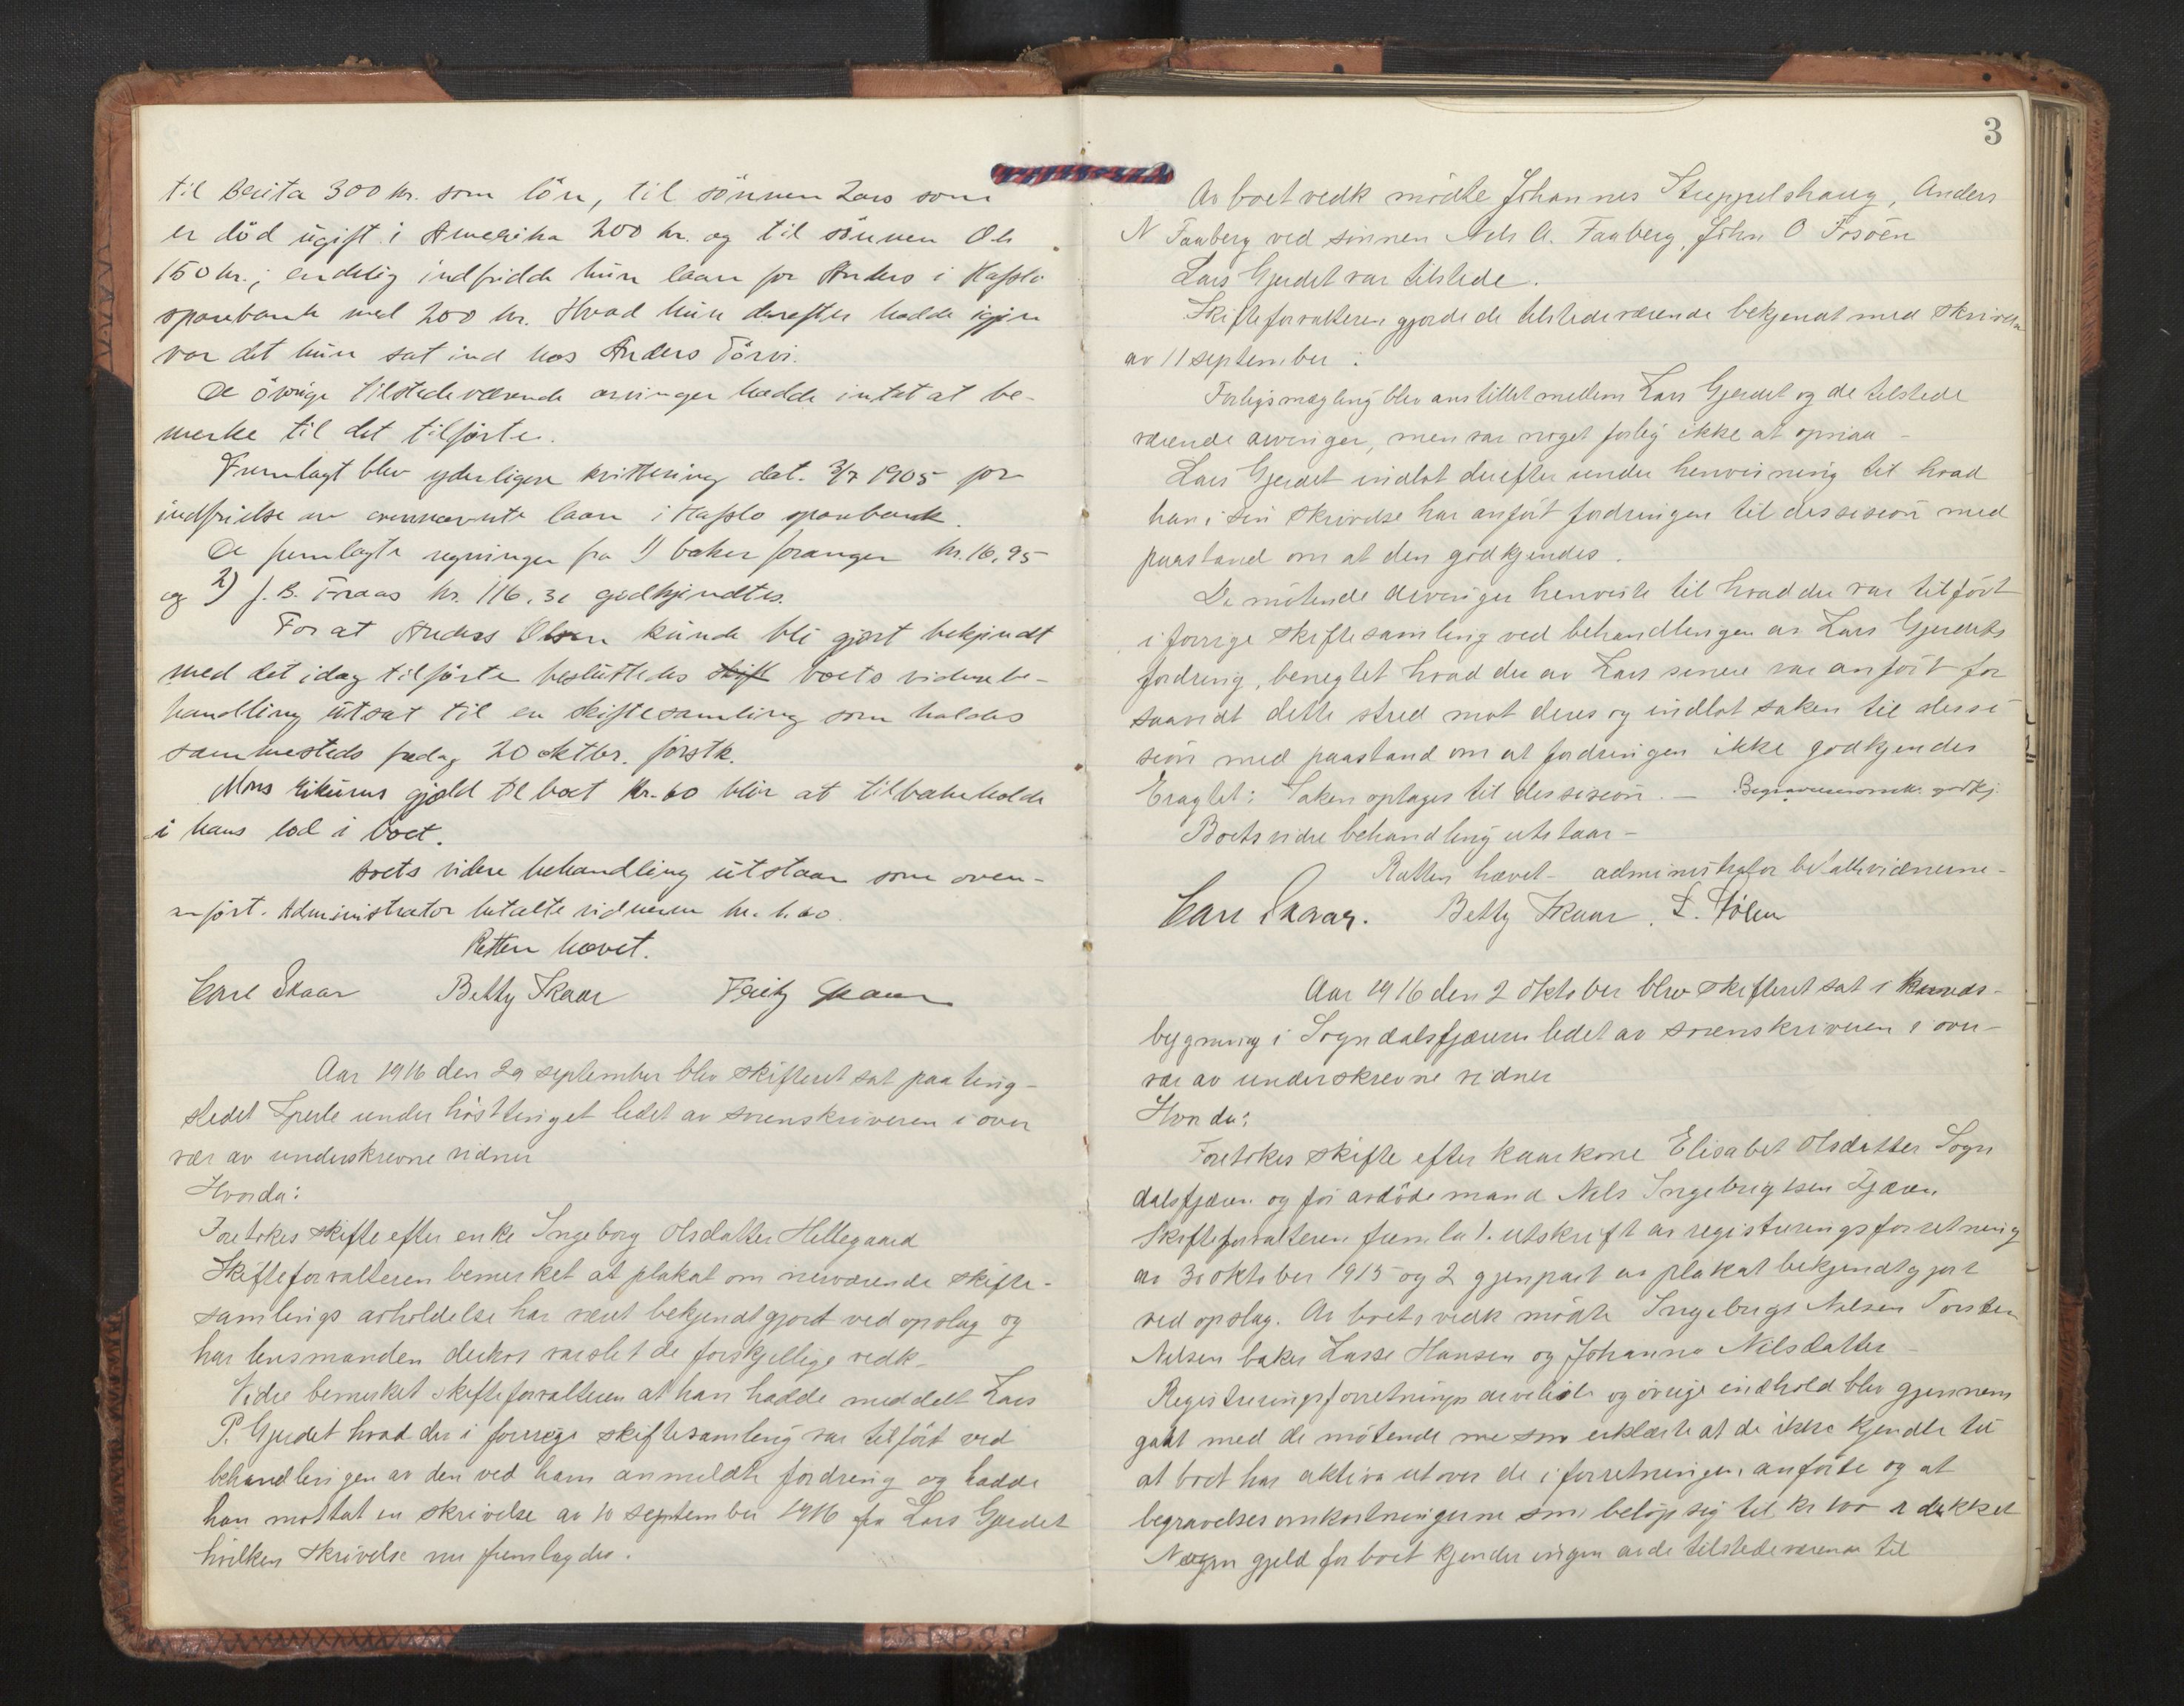 til Brita 300 kr. som lön, til sönnen Lars som
er död ugift i Amerika 200 kr. og til sönnen Ole
150 kr.; endelig indfridde hun laan for Anders i Hafslo
sparebank med 200 kr. Hvad hun derefter hadde igjen
var det hun sat ind hos Anders Törvi.
De övrige tilstedeværende arvinger hadde intet at be-
merke til det tilförte.
Fremlagt blev yderligere kvittering dat. 3/7 1905 for
indfrielse av ovennævnte laan i Hafslo sparebank.
De fremlagte regninger fra 1) baker foranger kr. 16,95
og 2) J. B. Fraas kr. 116,31 godkjendtes.
For at Anders Olsen kunde bli gjort bekjendt
med det idag tilförte besluttedes skift boets videre be-
handling utsat til en skiftesamling som holdes
sammesteds fredag 20 oktbr. förstk.
Mons Eikums gjæld til boet kr. 60 blir at tilbakeholde
i hans lod i boet.
Boets videre behandling utstaar som oven-
anfört. Administrator betalte vidnerne kr. 1.60.
Retten hævet.
Carl Skaar Betty Skaar Fritz Skaar
Aar 1916 den 29 september blev skifteret sat paa ting-
stedet Sperle under hösttinget ledet av sorenskriveren i over
vær av underskrevne vidner
Hvorda:
Foretokes skifte efter enke Ingeborg Olsdatter Hillegaard
Skifteforvalteren bemerket at plakat om nærværende skifte-
samlings avholdelse har været bekjendtgjort ved opslag og
har lensmanden derhos varslet de forskjellige vedk.
Vidre bemerket skifteforvalteren at han hadde meddelt Lars
P. Gjerdet hvad der i forrige skiftesamling var tilfört ved
behandlingen av den ved ham anmeldte fordring og hadde
han mottat en skrivelse av 10 september 1916 fra Lars Gjerdet
hvilken skrivelse nu fremlagdes.
3
Av boet vedk mödte Johannes Stuppelshaug, Anders
N Faaberg ved sönnen Nels A. Faaberg, John O Fosöen
Lars Gjerdet var tilstede.
Skifteforvalteren gjorde de tilstedeværende bekjendt med skrivelse
av 11 september.
Forligsmægling blev anstillet mellem Lars Gjerdet og de tilstede
værende arvinger, men var noget forlig ikke at opnaa -
Lars Gjerdet indlot derefter under henvisning til hvad
han i sin skrivelse har anfört fordringen til dessision med
paastand om at den godkjendes.
De mötende arvinger henviste til hvad der var tilfört
i forrige skiftesamling ved behandlingen av Lars Gjerdets
fordring, benegtet hvad der av Lars senere var anfört for
saavidt dette stred mot deres og indlot saken til dessi
sion med paastand om at fordringen ikke godkjendes
Eragtet: Saken optages til dessision. — Begravelsesomk. godkj.
Boets vidre behandling utstaar -
Retten hævet - administrator bet alle vidnerne -
Carl Skaar. Betty Skaar. L. Stölen
Aar 1916 den 2 oktober blev skifteret sat i
bygning i Sogndalsfjæren ledet av sorenskriveren i over-
vær av underskrevne vidner
Hvorda:
Foretokes skifte efter kaarkone Elisabet Olsdatter Sogn
dalsfjæren og för avdöde mand Nils Ingebrigtsen Fjæren
Skifteforvalteren fremla 1. utskrift av registreringsforretning
av 30 oktober 1915 og 2 gjenpart av plakat bekjendtgjort
ved opslag. Av boets vedk mödte Ingebrigt Nilsen Torsten
Nilsen baker Lasse Hansen og Johanna Nilsdatter -
Registreringsforretningens arveliste og övrige indhold blev gjennem
gaat med de mötende som erklærte at de ikke kjendte til
at boet har aktiva utover de i forretningen anförte og at
begravelsesomkostningerne som belöp sig til kr 100 er dækket
Nogen gjeld for boet kjender ingen av de tilstedeværende til